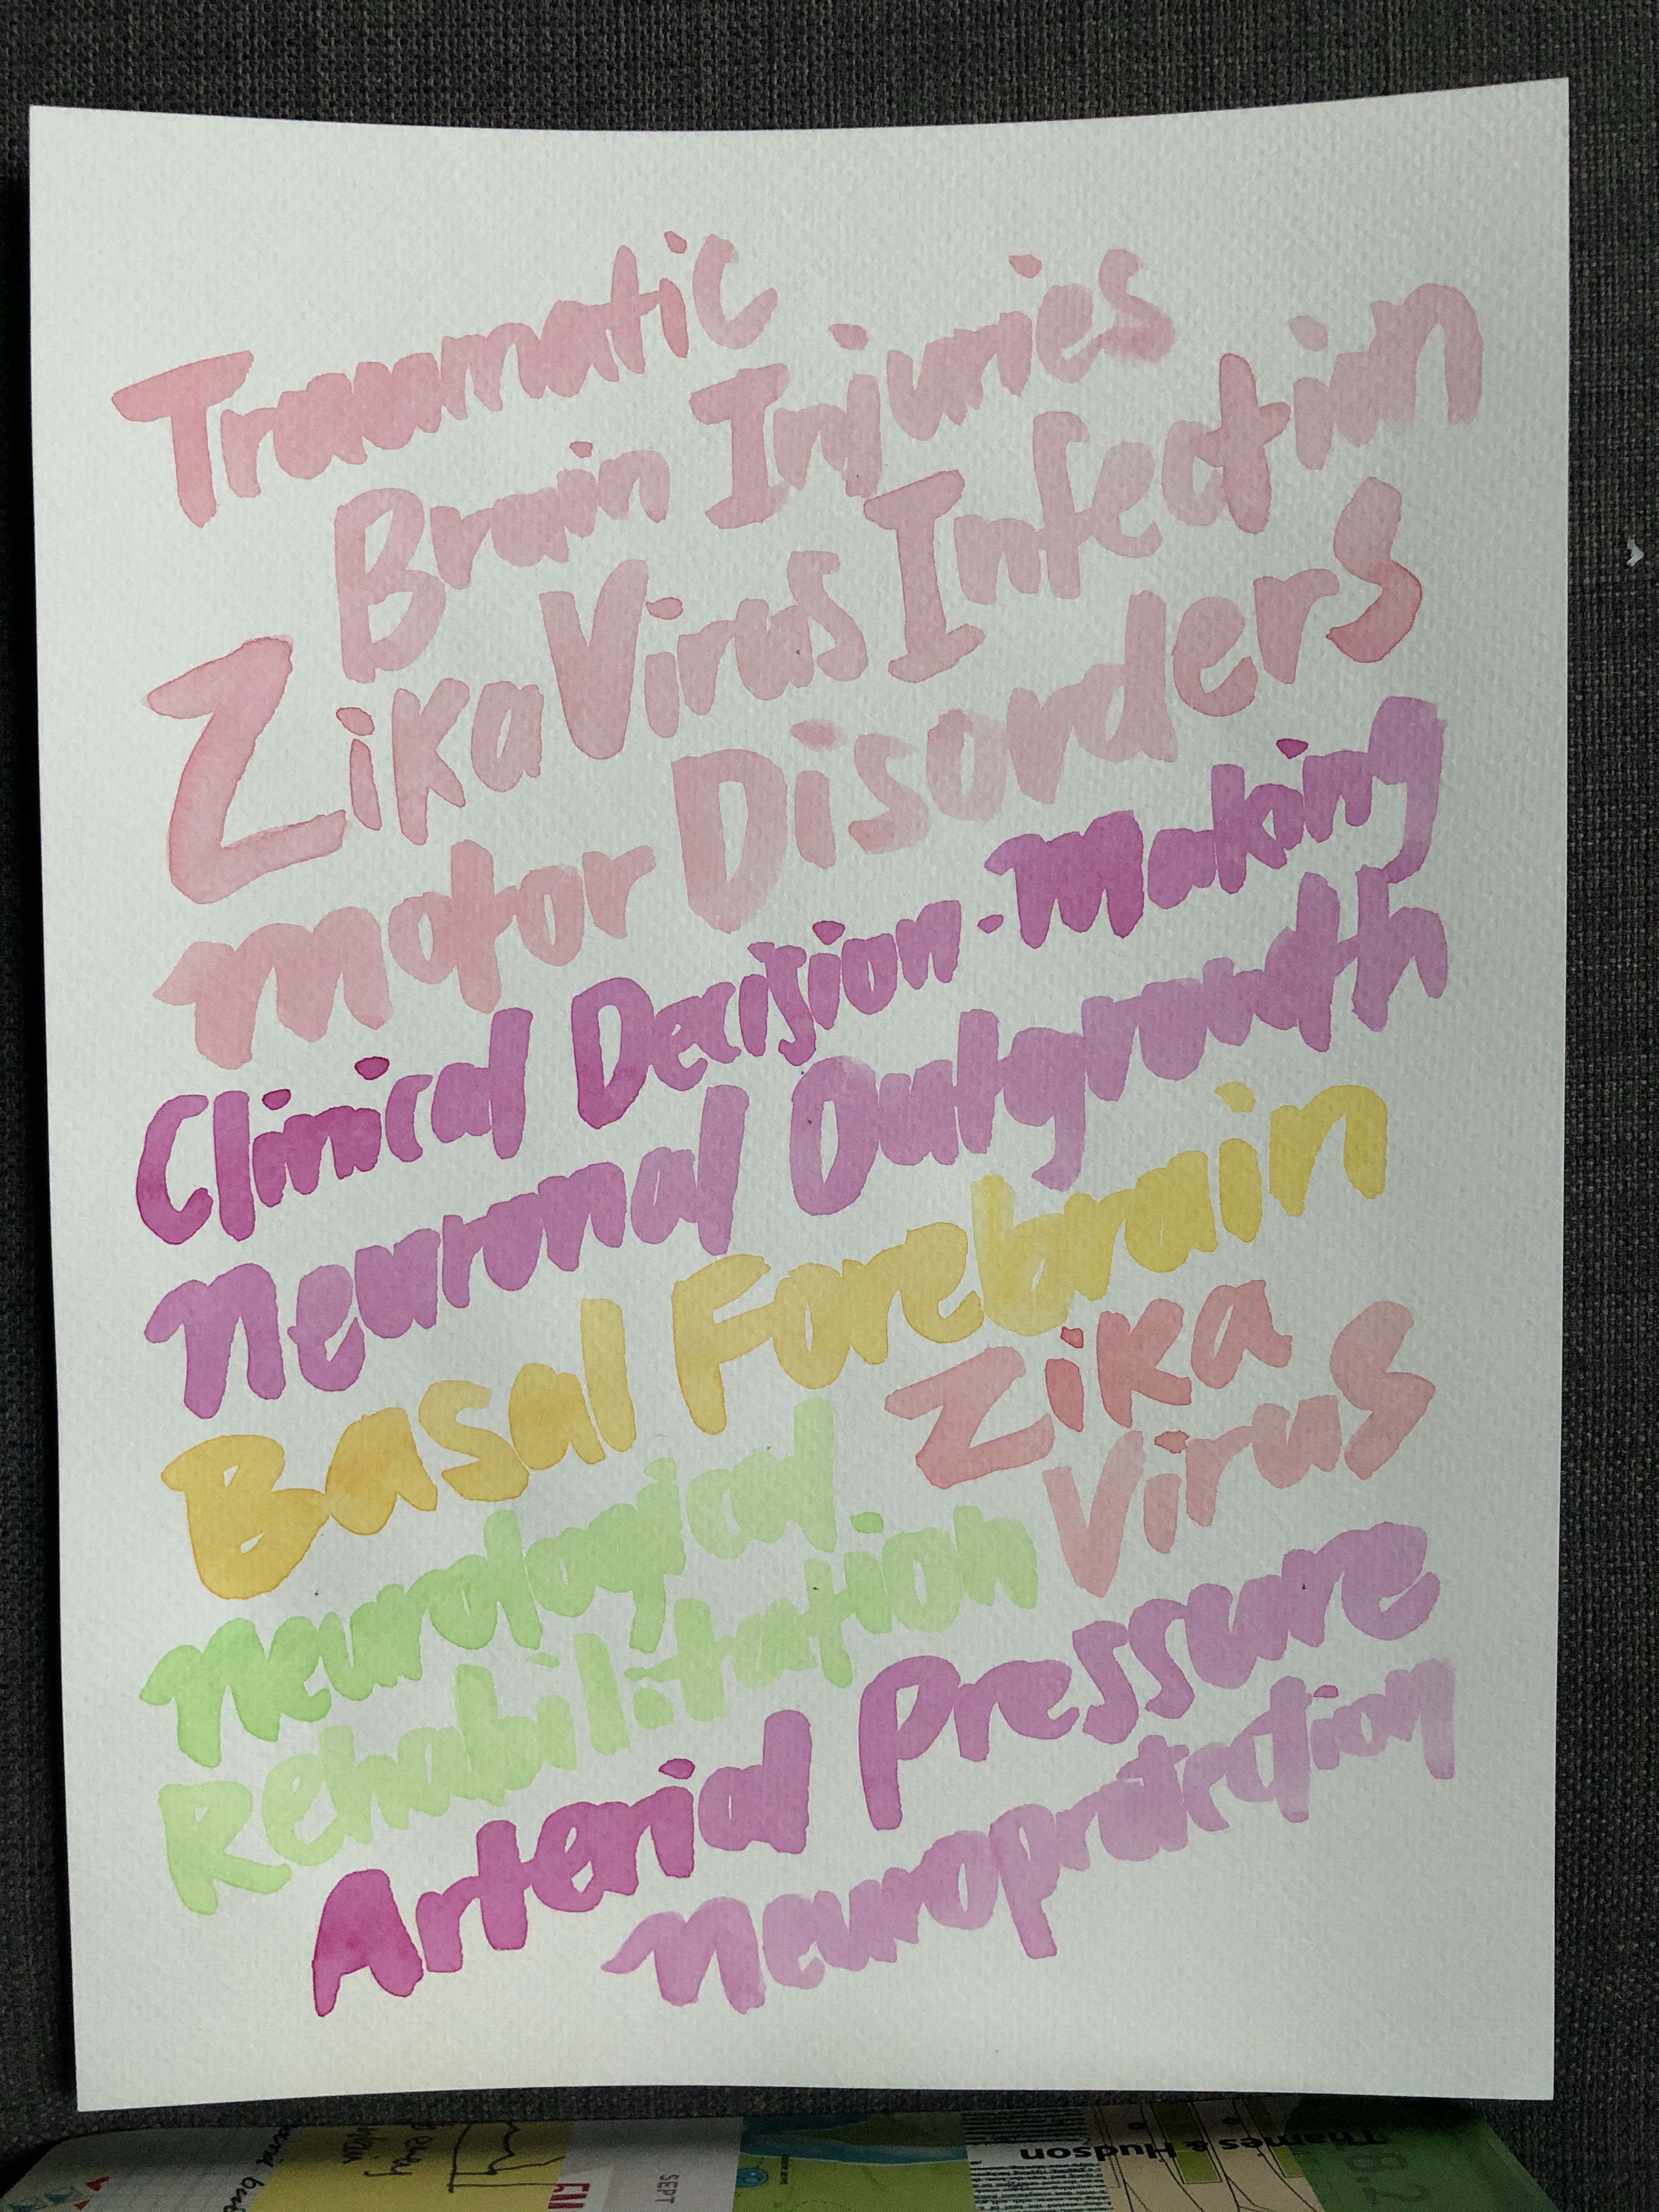 Traumatic
Brain Injuries
Zika Virus Infection
Motor Disorders
Clinical Decision-Making
Neuronal Outgrowth
Basal Forebrain
Zika
Virus
Neurological
Rehabilitation
Arterial Pressure
Neuroprotection
SEPT
Thames & Hudson